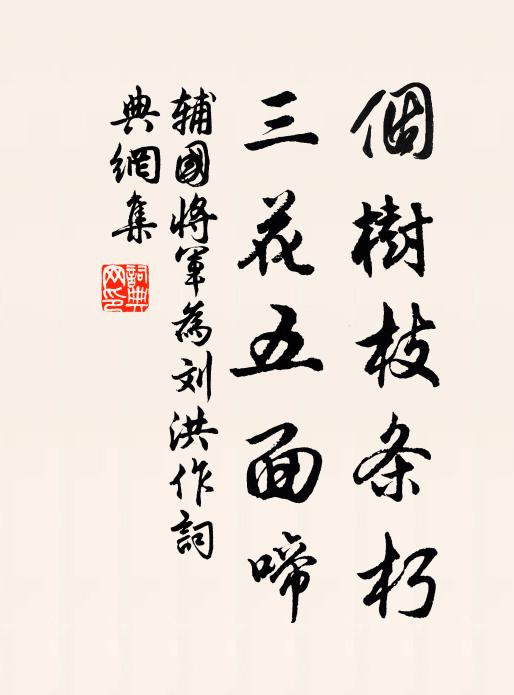 個樹枝条朽
三花五面啼
辅國将軍為刘洪作詞
典網集
詞典
网印